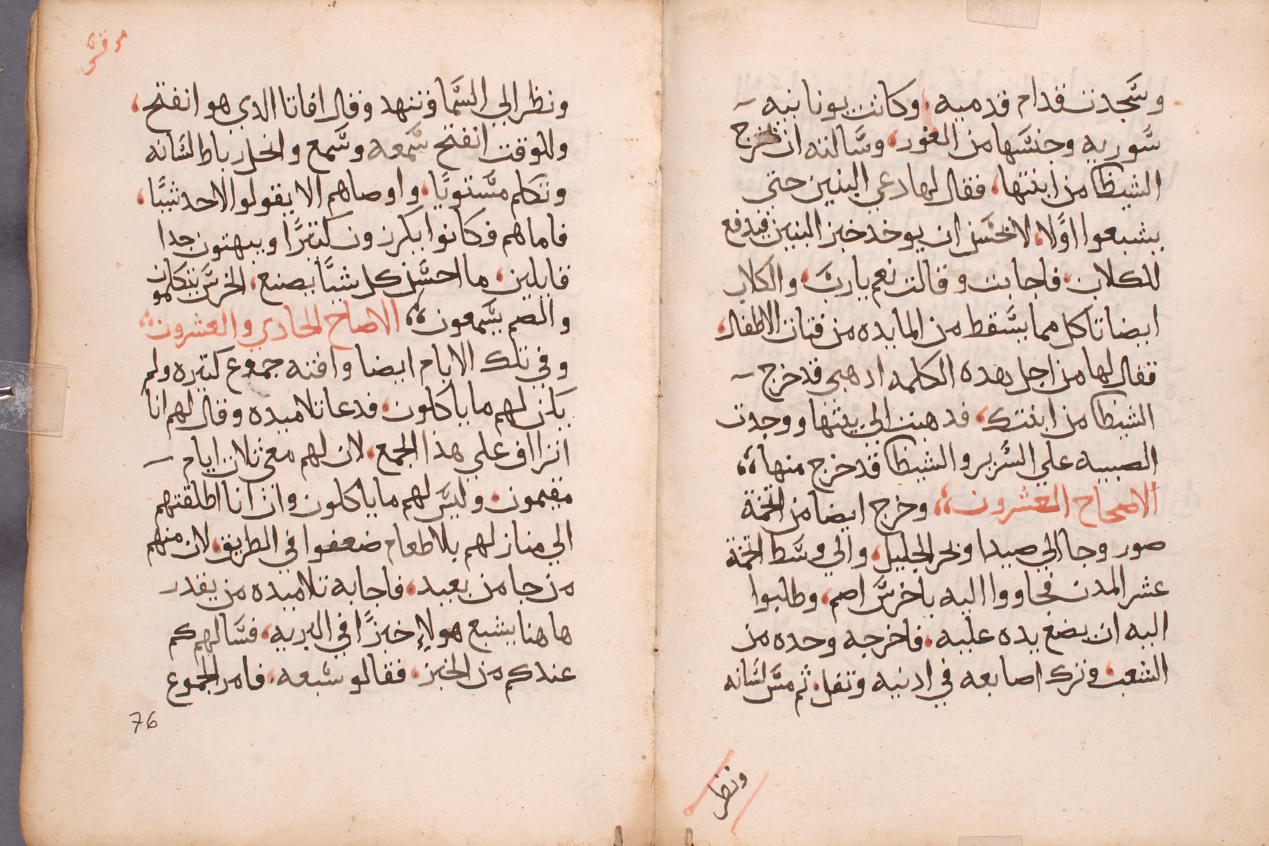 وسجدت قدام قدميه، وكانت يونانيه
سوريه وجنسها من الغور، وسالته ان يخرج
الشيطان من ابنتها، فقال لها دعي البنين حتي
يشبعوا اولا، لا يحسن ان يوخد خبز البنين فيدفع
للكلاب، فاجابت وقالت نعم يارب، والكلاب
ايضا تاكل مما يسقط من المايده من فتات الاطفال،
فقال لها من اجل هده الكلمه ادهبي قد خرج
الشيطان من ابنتك، فدهبت الي بيتها ووجدت
الصبيه علي السرير والشيطان قد خرج منها،،
الاصحاح العشرون،، وخرج ايضا من تخمة
صور وجا الي صيدا وبحر الجليل، والي وسط تخمة
عشر المدن فجاووا اليه باخرس اصم، وطلبوا
اليه ان يضع يده عليه، فاخرجه وحده من
الشعب، وترك اصابعه في ادنيه وتفل، ثم مس لسانه
ونظر
ونظر الي السما وتنهد وقال افاتا الدي هو انفتح،
وللوقت انفتح سمعه وسمع وانحل رباط لسانه
وتكلم مستويا، واوصاهم الا يقولوا لاحد شيا،
فاما هم فكانوا يكرزون كتيرا ويبهتون جدا
قايلين، ما احسن كل شيا يصنع، الخرس يتكلمون
والصم يسمعون،، الاصحاح الحادي والعشرون،،
وفي تلك الايام ايضا وافته جموع كتيره ولم
يكن لهم ما ياكلون، فدعا تلاميده وقال لهم انا
اتراف علي هدا الجمع، لان لهم معي تلات ايام
مقيمون، وليس لهم ما ياكلون وان انا اطلقتهم
الي منازلهم بلا طعام ضعفوا في الطريق، لان منهم
من جا من بعيد، فاجابه تلاميده من يقدر
هاهنا يشبع هولاء خبزا في البريه، فسالهم كم
عندكم من الخبز، فقالو سبعه، فامر الجموع
76